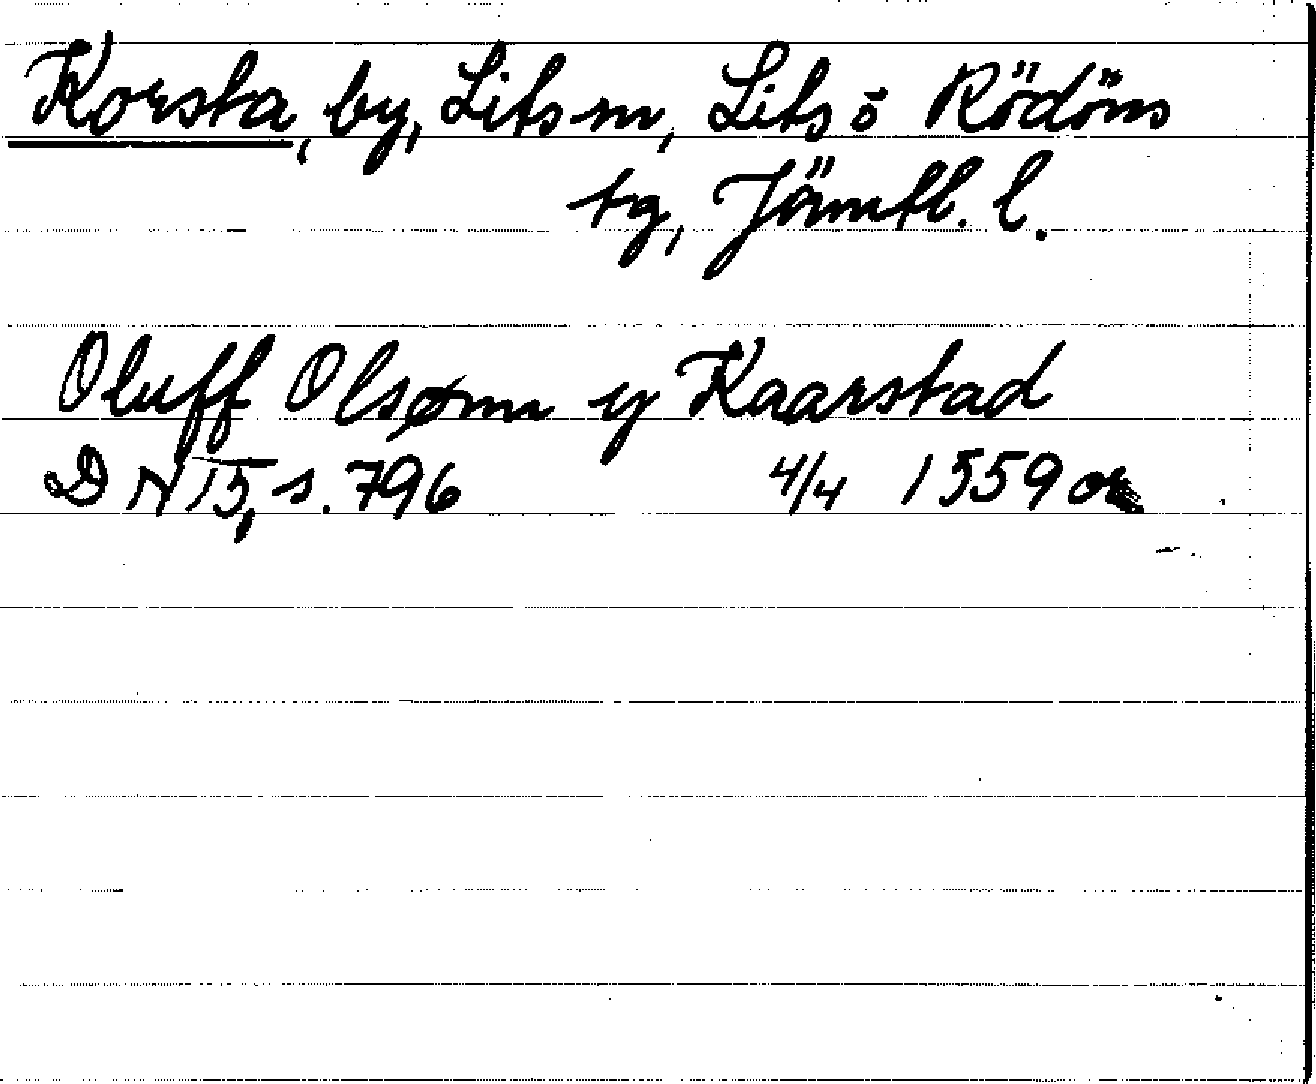 Korsta, by, Lits sn, Lits o Rödöns
tg, Jämtl. l.
Oluff Olsønn y Kaarstad
DN 15, s. 796 4/4 1559 or